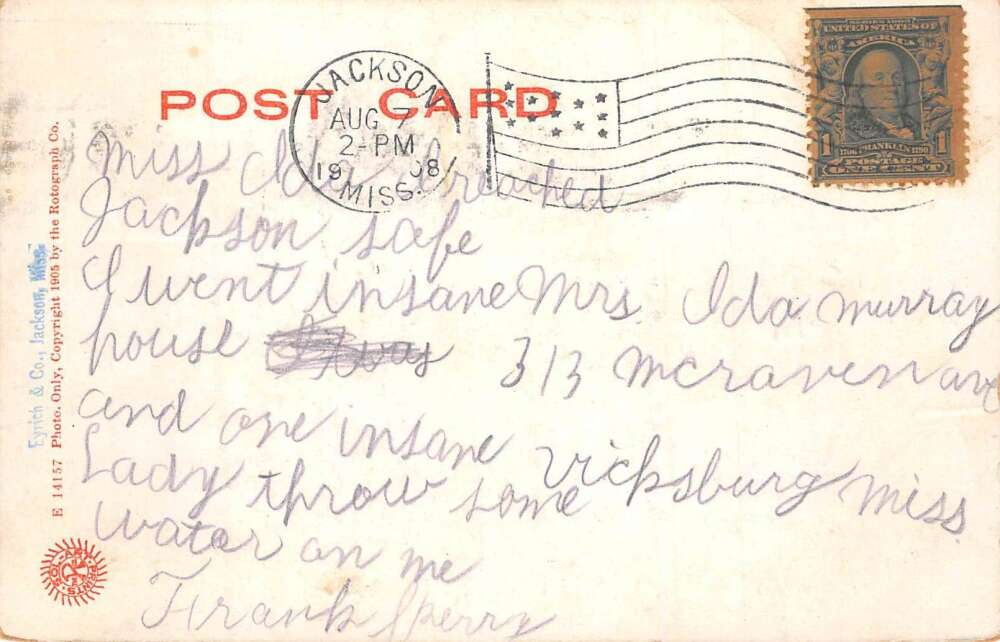 POST CARD
JACKSON
AUG 7
2-PM
19 08
MISS.
SERIES 1902
UNITED STATES OF
AMERICA
1706 FRANKLIN 1790
POSTAGE
1 ONE CENT 1
Miss Ida I reached
Jackson safe
I went insane
house
and one insane
Lady throw some
water on me
Frank Sperry
Mrs Ida Murray
313 McCraven ave
Vicksburg Miss
Eyrich & Co., Jackson, Miss.
E 14157 Photo. Only, Copyright 1905 by the Rotograph Co.